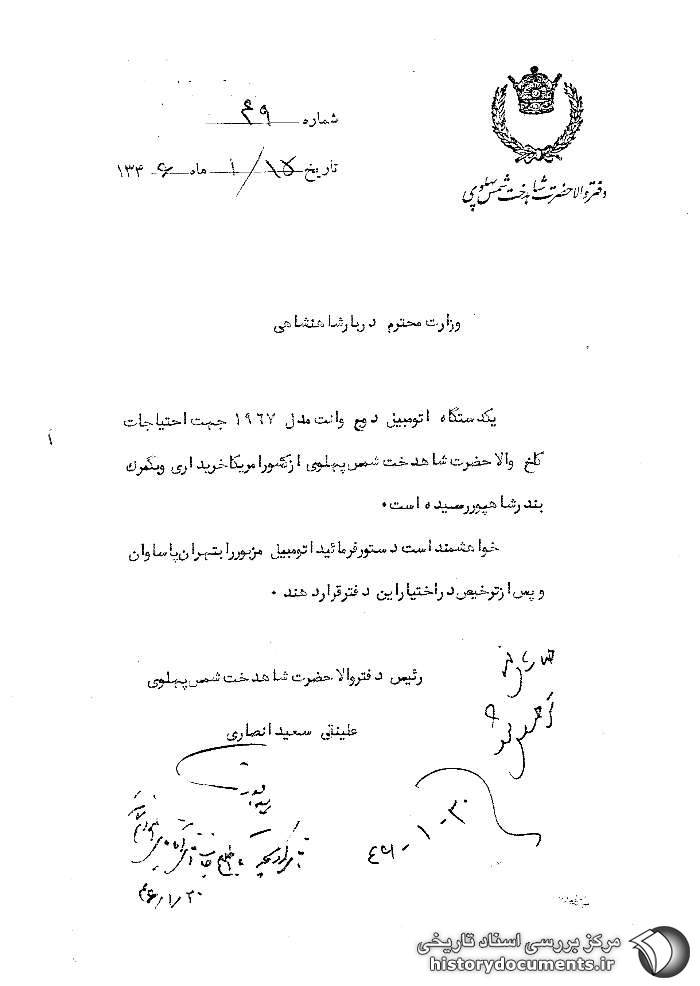 دفتر والاحضرت شاهدخت شمس پهلوی
شماره ۴۹
تاریخ ۱۵/ ۱ ماه ۱۳۴۶
وزارت محترم دربار شاهنشاهی
یکدستگاه اتومبیل دوج وانت مدل ۱۹۶۷ جهت احتیاجات
کاخ والاحضرت شاهدخت شمس پهلوی از کشور امریکا خریداری و بگمرک
بندر شاهپور رسیده است.
خواهشمند است دستور فرمائید اتومبیل مزبور را بتهران پاساوان
و پس از ترخیص در اختیار این دفتر قرار دهند.
رئیس دفتر والاحضرت شاهدخت شمس پهلوی
علینقی سعید انصاری
۴۶-۱-۳۰
۴۶/۱/۳۰
مرکز بررسی اسناد تاریخی
historydocuments.ir